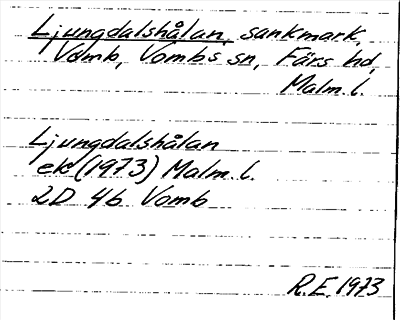 Ljungdalshålan, sankmark,
Vomb, Vombs sn, Färs hd,
Malm. l.
Ljungdalshålan
ek (1973) Malm. l.
2D 4b Vomb
R.E. 1973